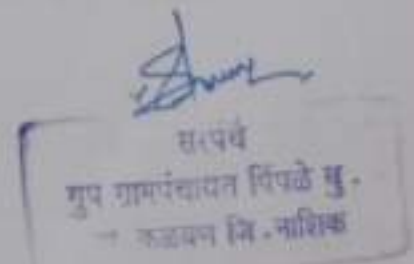 सरपंच
ग्रुप ग्रामपंचायत पिंपळे बु.
कळवण जि.नाशिक